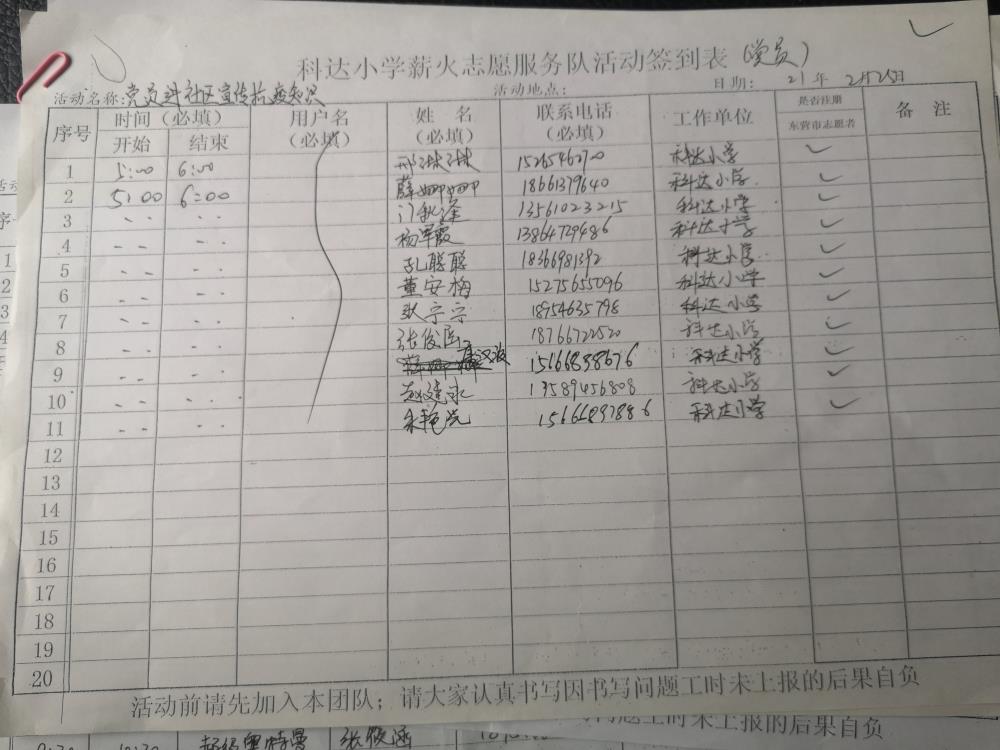 科达小学薪火志愿服务队活动签到表(党员)
活动名称:党员进社区宣传抗疫知识 活动地点: 日期: 21年 2月25日
序号 时间(必填) 开始 结束 用户名(必填) 姓名(必填) 联系电话(必填) 工作单位 是否注册东营市志愿者 备注
1 5:00 6:00 邢球球 科达小学 ✓
2 5:00 6:00 薛 18661379640 科达小学 ✓
3 〃 〃 门秋 13561023215 科达小学 ✓
4 〃 〃 杨军霞 13864729486 科达小学 ✓
5 〃 〃 孔聪聪 18366981392 科达小学 ✓
6 〃 〃 董安梅 15275655096 科达小学 ✓
7 〃 〃 张宁宁 18954635798 科达小学 ✓
8 〃 〃 张俊 18766722520 科达小学 ✓
9 〃 〃 15666838676 科达小学 ✓
10 〃 〃 赵建永 13589456808 科达小学 ✓
11 〃 〃 科达小学 ✓
12
13
14
15
16
17
18
19
20
活动前请先加入本团队;请大家认真书写因书写问题工时未上报的后果自负
问题工时未上报的后果自负